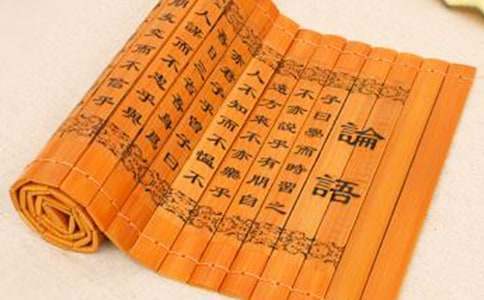 論語
子曰學而時習之
不亦說乎有朋自
遠方來不亦樂乎
人不知而不慍不
亦君子乎曾子曰
吾日三省吾身為
人謀而不忠乎與
朋友交而不信乎